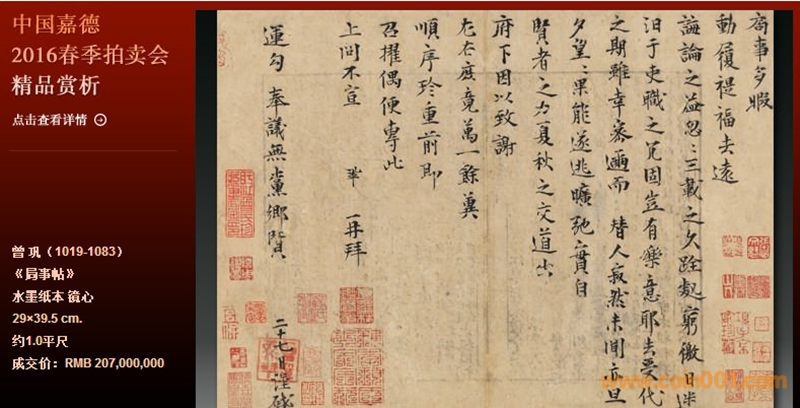 中国嘉德
2016春季拍卖会
精品赏析
点击查看详情
曾 巩（1019-1083）
《局事帖》
水墨纸本 镜心
29×39.5 cm.
约1.0平尺
成交价：RMB 207,000,000
局事多暇
動履禔福去遠
誨論之益忽〻三載之久跧處窮徼日迷
汩于吏職之冗固豈有樂意耶去受代
之期雖幸密邇而 替人寂然未聞亦旦
夕望〻果能遂逃曠弛實自
賢者之力夏秋之交道出
府下因以致謝
左右庶竟萬一餘冀
順序珍重前即
召擢偶便專此
上問不宣 鞏 再拜
運勾 奉議無黨鄉賢 二十七日謹啓